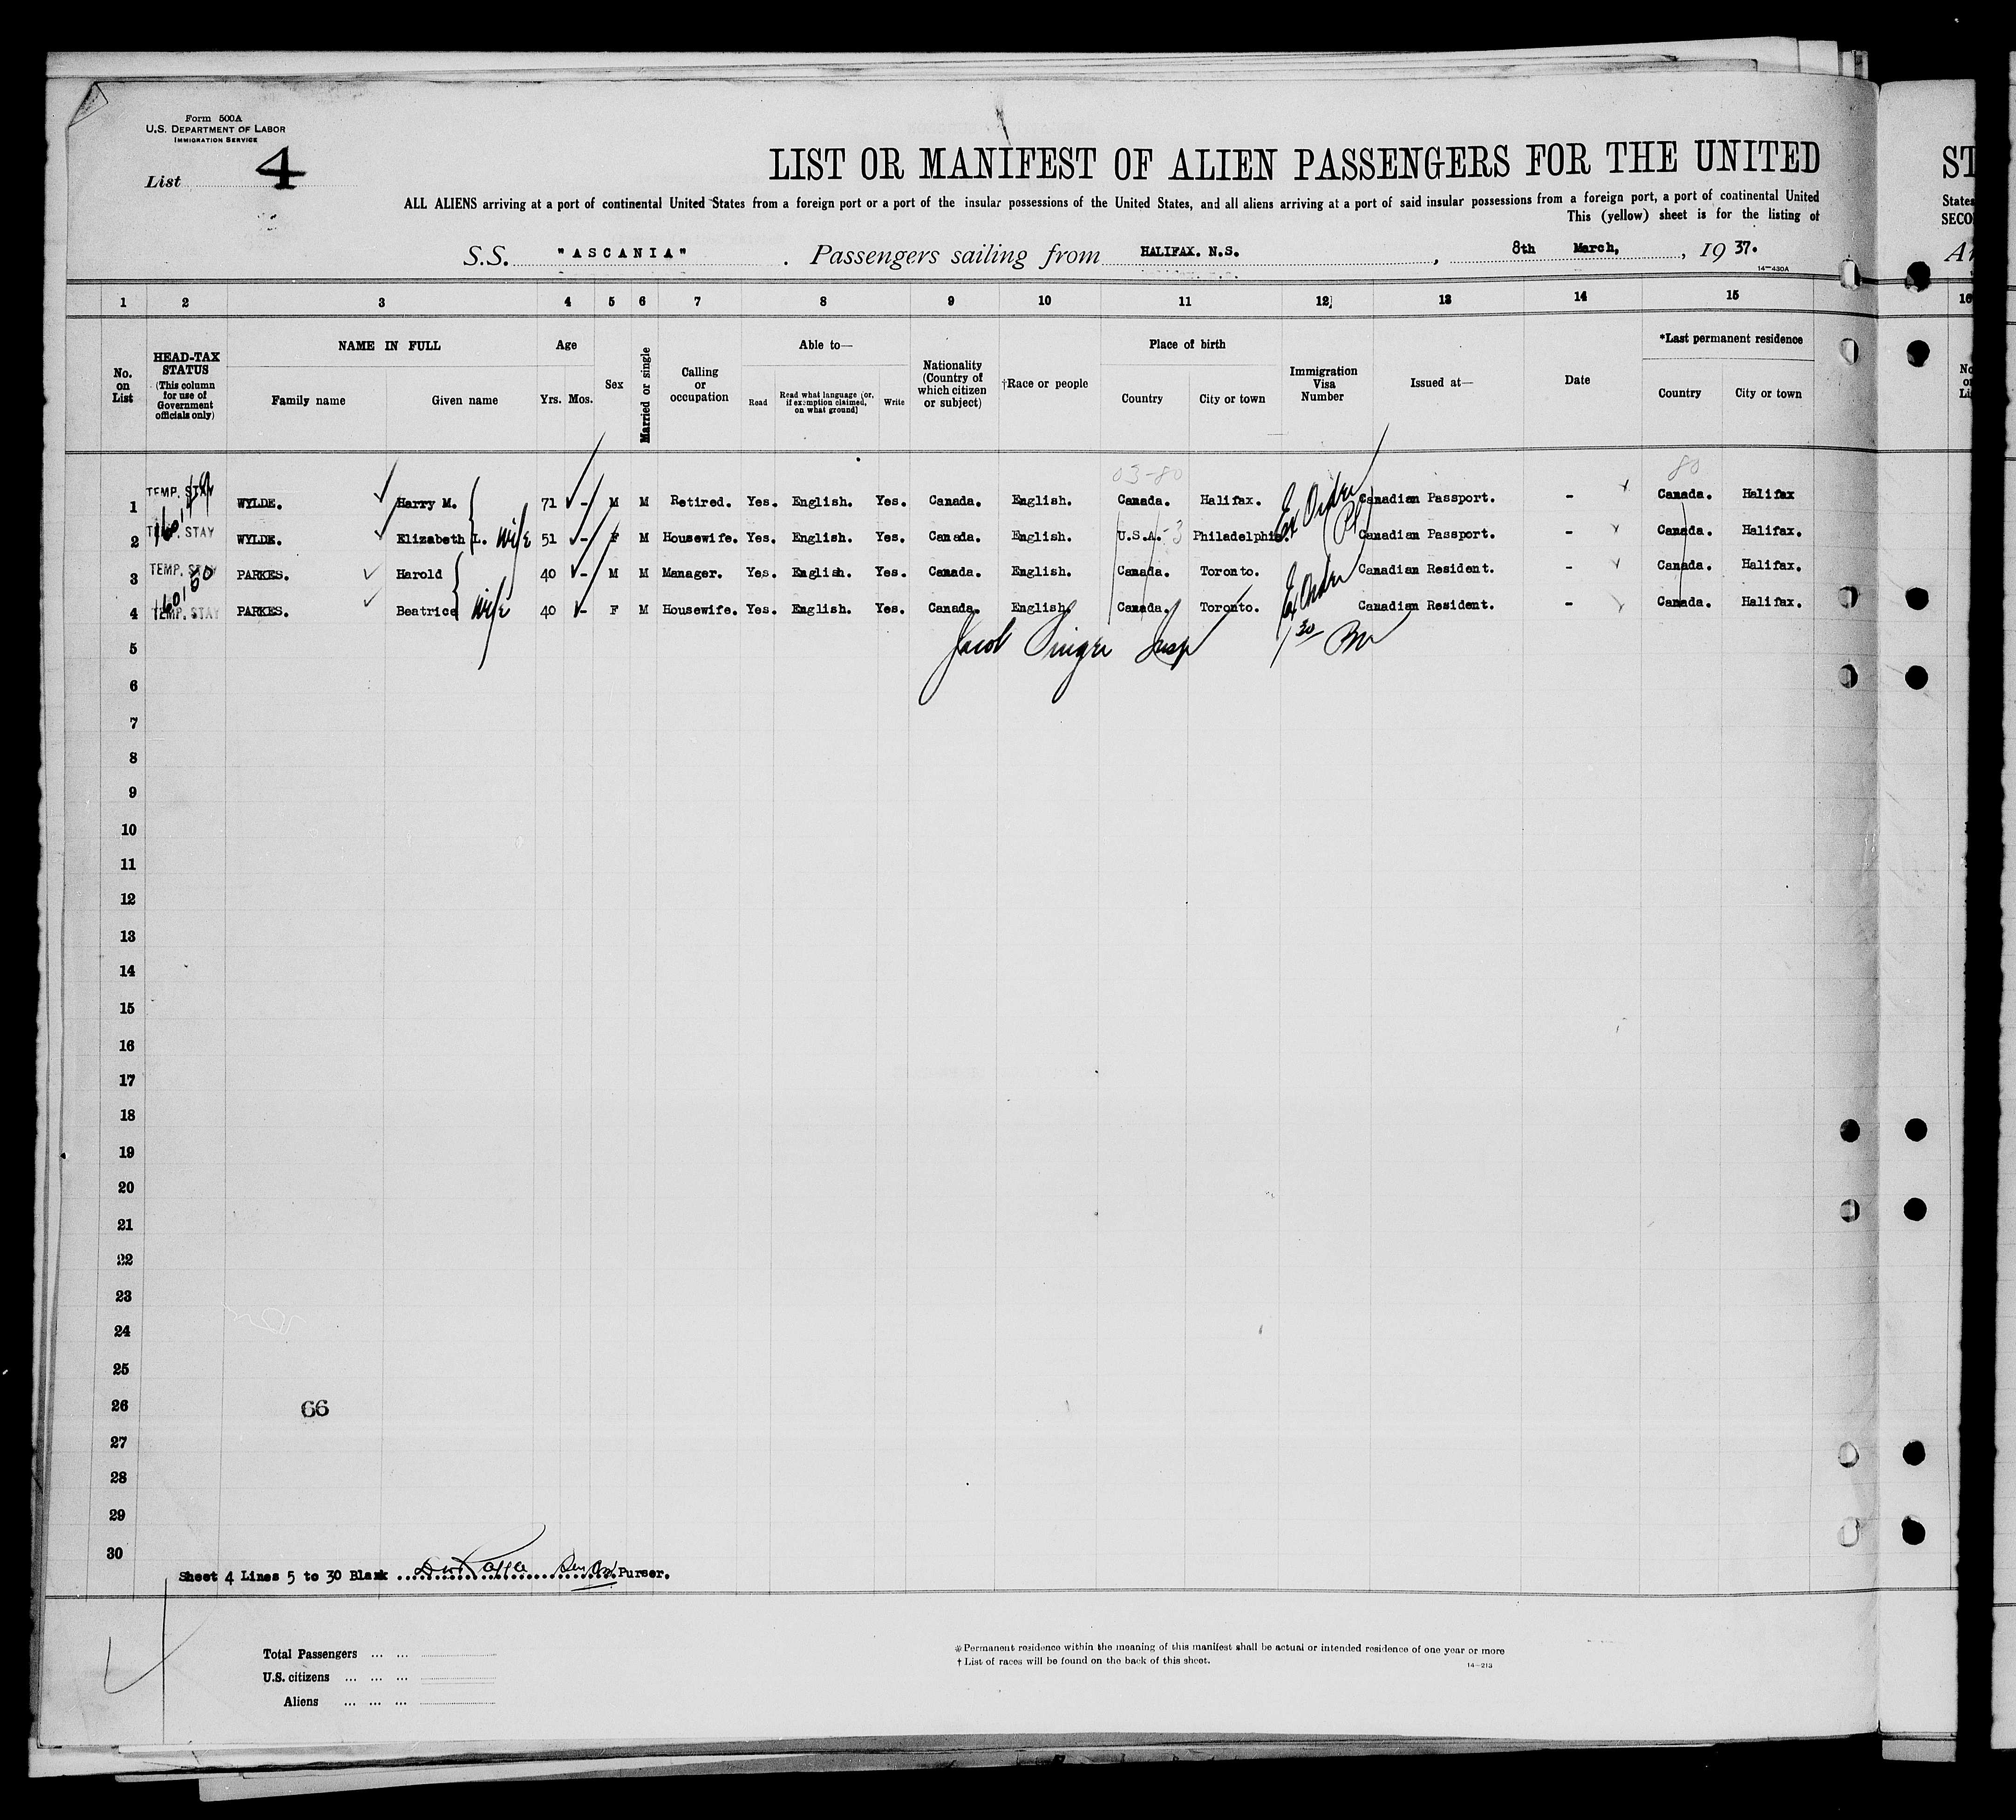 Form 500A
U.S. DEPARTMENT OF LABOR
IMMIGRATION SERVICE
List 4
LIST OR MANIFEST OF ALIEN PASSENGERS FOR THE UNITED ST
ALL ALIENS arriving at a port of continental United States from a foreign port or a port of the insular possessions of the United States, and all aliens arriving at a port of said insular possessions from a foreign port, a port of continental United States
This (yellow) sheet is for the listing of SECO
S.S. "ASCANIA" . Passengers sailing from HALIFAX. N.S. , 8th March, , 19 37.
14-430A
1 2 3 4 5 6 7 8 9 10 11 12 13 14 15 16
No. on List
HEAD-TAX STATUS (This column for use of Government officials only)
NAME IN FULL
Family name Given name
Age
Yrs. Mos.
Sex
Married or single
Calling or occupation
Able to—
Read Read what language (or, if exemption claimed, on what ground) Write
Nationality (Country of which citizen or subject)
†Race or people
Place of birth
Country City or town
Immigration Visa Number
Issued at—
Date
*Last permanent residence
Country City or town
03-80 80
1 TEMP. STAY WYLDE. Harry M. 71 - M M Retired. Yes. English. Yes. Canada. English. Canada. Halifax. Canadian Passport. - Canada. Halifax
2 TEMP. STAY WYLDE. Elizabeth L. Wife 51 - F M Housewife. Yes. English. Yes. Canada. English. U.S.A. -3 Philadelphia. Canadian Passport. - Canada. Halifax.
3 TEMP. STAY PARKES. Harold 40 - M M Manager. Yes. English. Yes. Canada. English. Canada. Toronto. Canadian Resident. - Canada. Halifax.
4 TEMP. STAY PARKES. Beatrice Wife 40 - F M Housewife. Yes. English. Yes. Canada. English. Canada. Toronto. Canadian Resident. - Canada. Halifax.
5 Jacob Singer Insp
6
7
8
9
10
11
12
13
14
15
16
17
18
19
20
21
22
23
24
25
26 66
27
28
29
30
Sheet 4 Lines 5 to 30 Blank Purser.
Total Passengers ... ...
U.S. citizens ... ... ...
Aliens ... ... ...
* Permanent residence within the meaning of this manifest shall be actual or intended residence of one year or more
† List of races will be found on the back of this sheet.
14-213